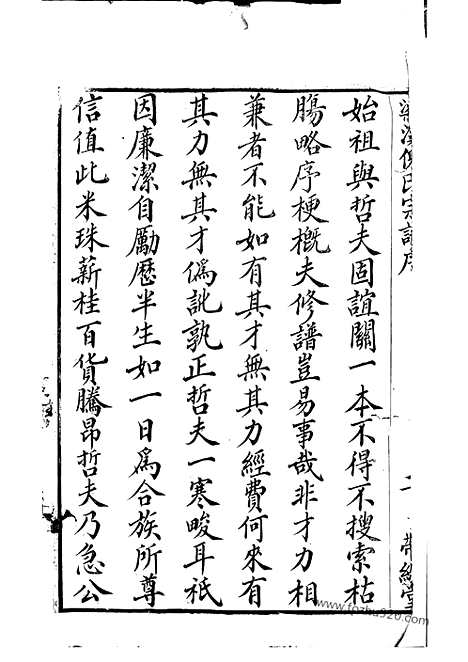 梁溪倪氏宗譜序
二
帶經堂
始祖與哲夫固誼關一本不得不搜索枯
腸略序梗概夫修譜豈易事哉非才力相
兼者不能如有其才無其力經費何來有
其力無其才僞訛孰正哲夫一寒畯耳祇
因廉潔自勵歷半生如一日爲合族所尊
信值此米珠薪桂百貨騰昂哲夫乃急公
www.fozhu920.com